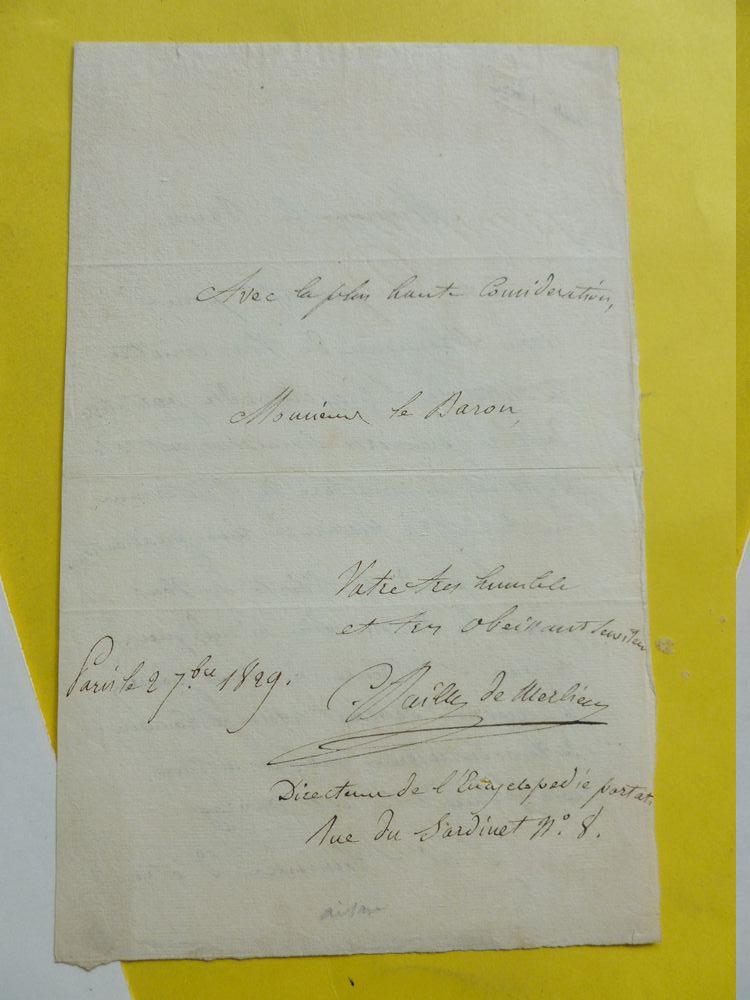 Avec la plus haute Considération,
Monsieur le Baron,
Votre tres humble
et tres obeissant serviteur
Paris le 2 7.bre 1829.
C. Bailly de Merlieux
Directeur de l'Encyclopedie portat.
Rue du Jardinet N.° 8.